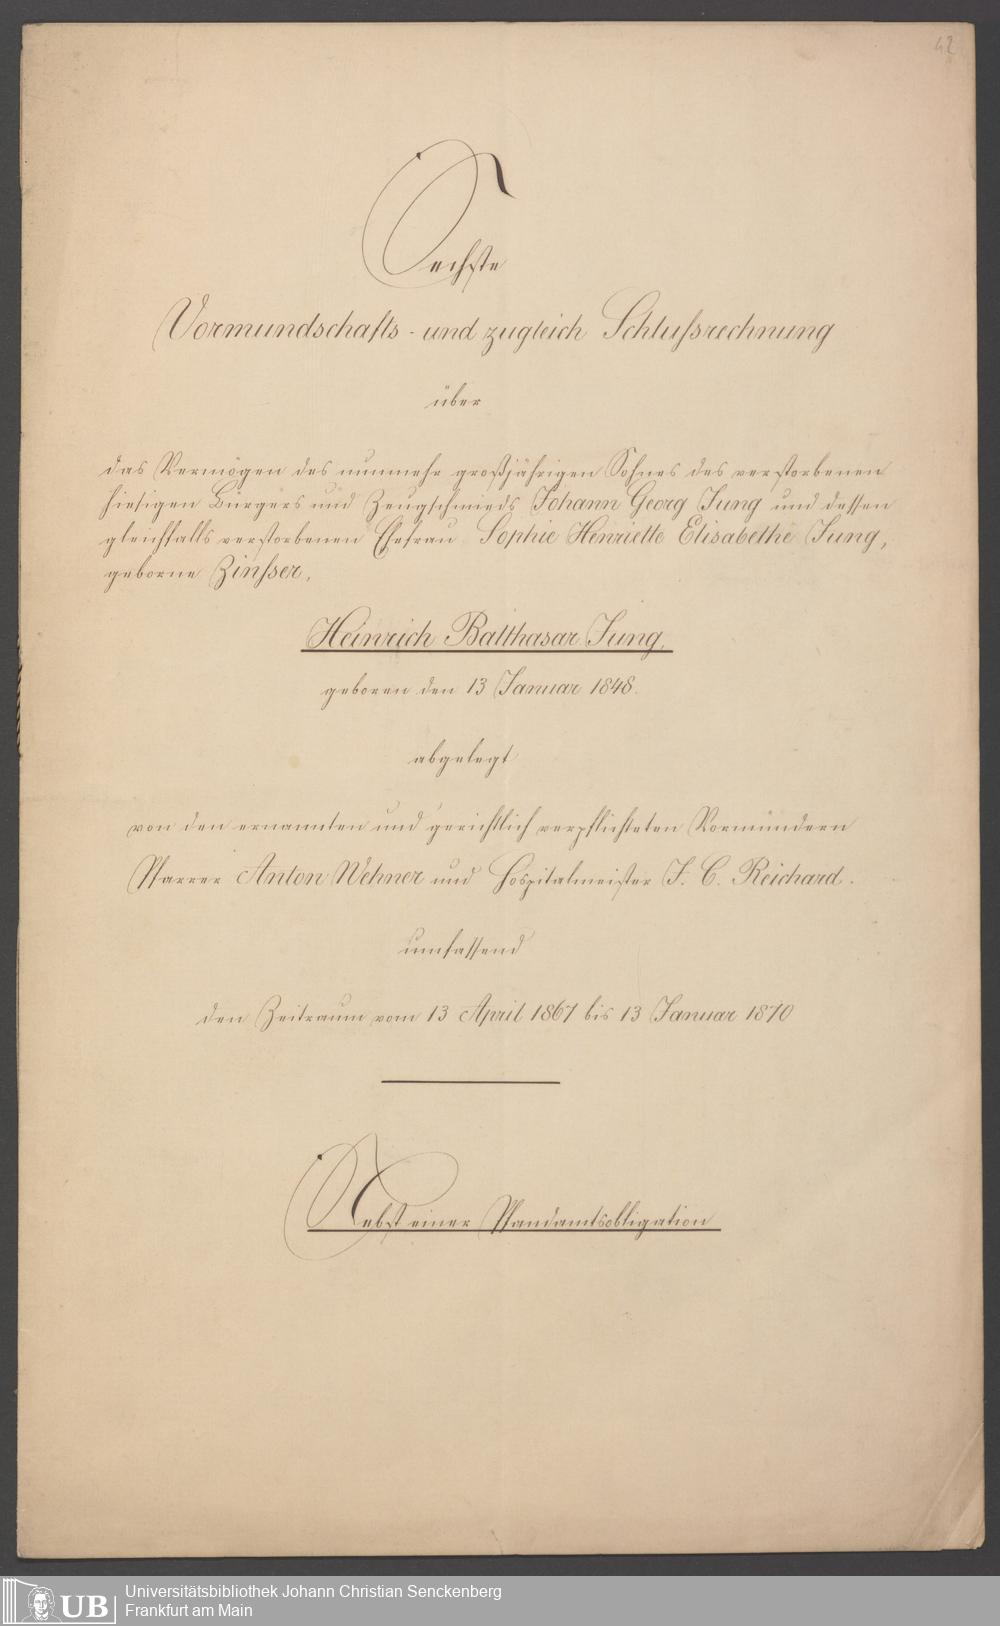 42
Sechste
Vormundschafts - und zugleich Schlußrechnung
über
das Vermögen des nunmehr großjährigen Sohnes des verstorbenen
hiesigen Bürgers und Zeugschmieds Johann Georg Jung und dessen
gleichfalls verstorbenen Ehefrau Sophie Henriette Elisabethe Jung,
geborne Zinßer,
Heinrich Balthasar Jung,
geboren den 13 Januar 1848.
abgelegt
von den ernannten und gerichtlich verpflichteten Vormündern
Pfarrer Anton Wehner und Hospitalmeister J. C. Reichard.
umfassend
den Zeitraum vom 13 April 1867 bis 13 Januar 1870
Nebst einer Pfandamtsobligation
UB
Universitätsbibliothek Johann Christian Senckenberg
Frankfurt am Main